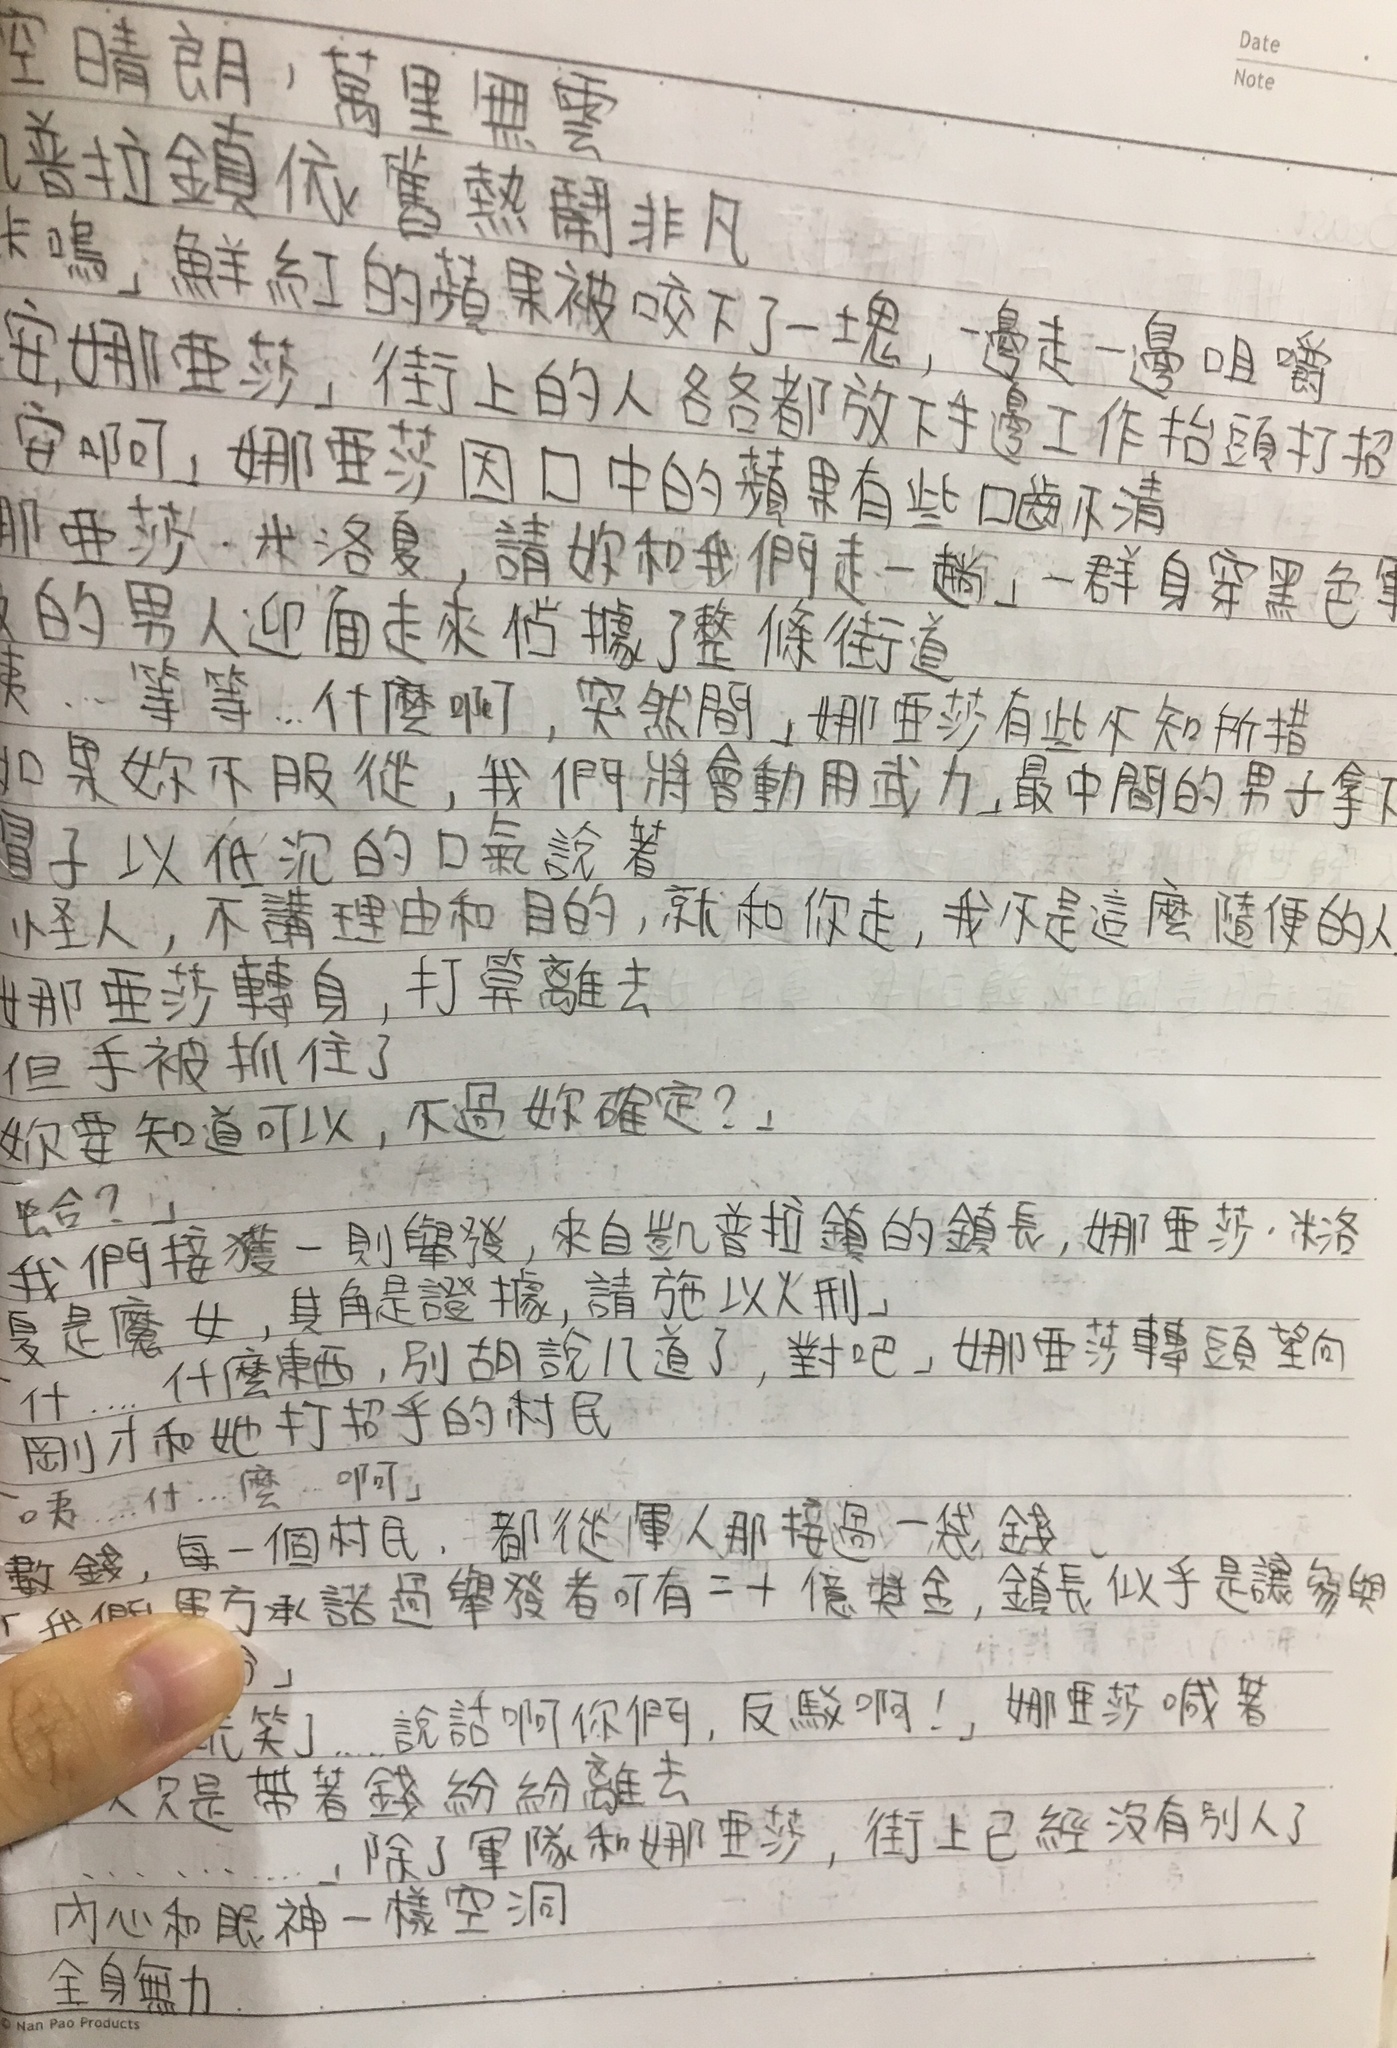 Date
Note
空晴朗，萬里無雲
普拉鎮依舊熱鬧非凡
鳴」鮮紅的蘋果被咬下了一塊，一邊走一邊咀嚼
安，娜亜莎」街上的人各各都放下手邊工作抬頭打招
安啊」娜亜莎因口中的蘋果有些口齒不清
那亜莎．米洛夏，請妳和我們走一趟」一群身穿黑色軍
的男人迎面走來佔據了整條街道
咦…等等…什麼啊，突然間」娜亜莎有些不知所措
如果妳不服從，我們將會動用武力」最中間的男子拿下
帽子以低沉的口氣說著
怪人，不講理由和目的，就和你走，我不是這麼隨便的人
娜亜莎轉身，打算離去
但手被抓住了
妳要知道可以，不過妳確定？」
哈？」
我們接獲一則舉發，來自凱普拉鎮的鎮長，娜亜莎．米洛
夏是魔女，其角是證據，請施以火刑」
「什…. 什麼東西，別胡說八道了，對吧」娜亜莎轉頭望向
剛才和她打招乎的村民
「咦….什…麼…啊」
數錢，每一個村民．都從軍人那接過一袋錢
「我們軍方承諾過舉發者可有二十億獎金，鎮長似乎是讓參與
」
玩笑了……說話啊你們，反駁啊！」娜亜莎喊著
只是帶著錢紛紛離去
…………」除了軍隊和娜亜莎，街上已經沒有別人了
內心和眼神一樣空洞
全身無力
© Nan Pao Products